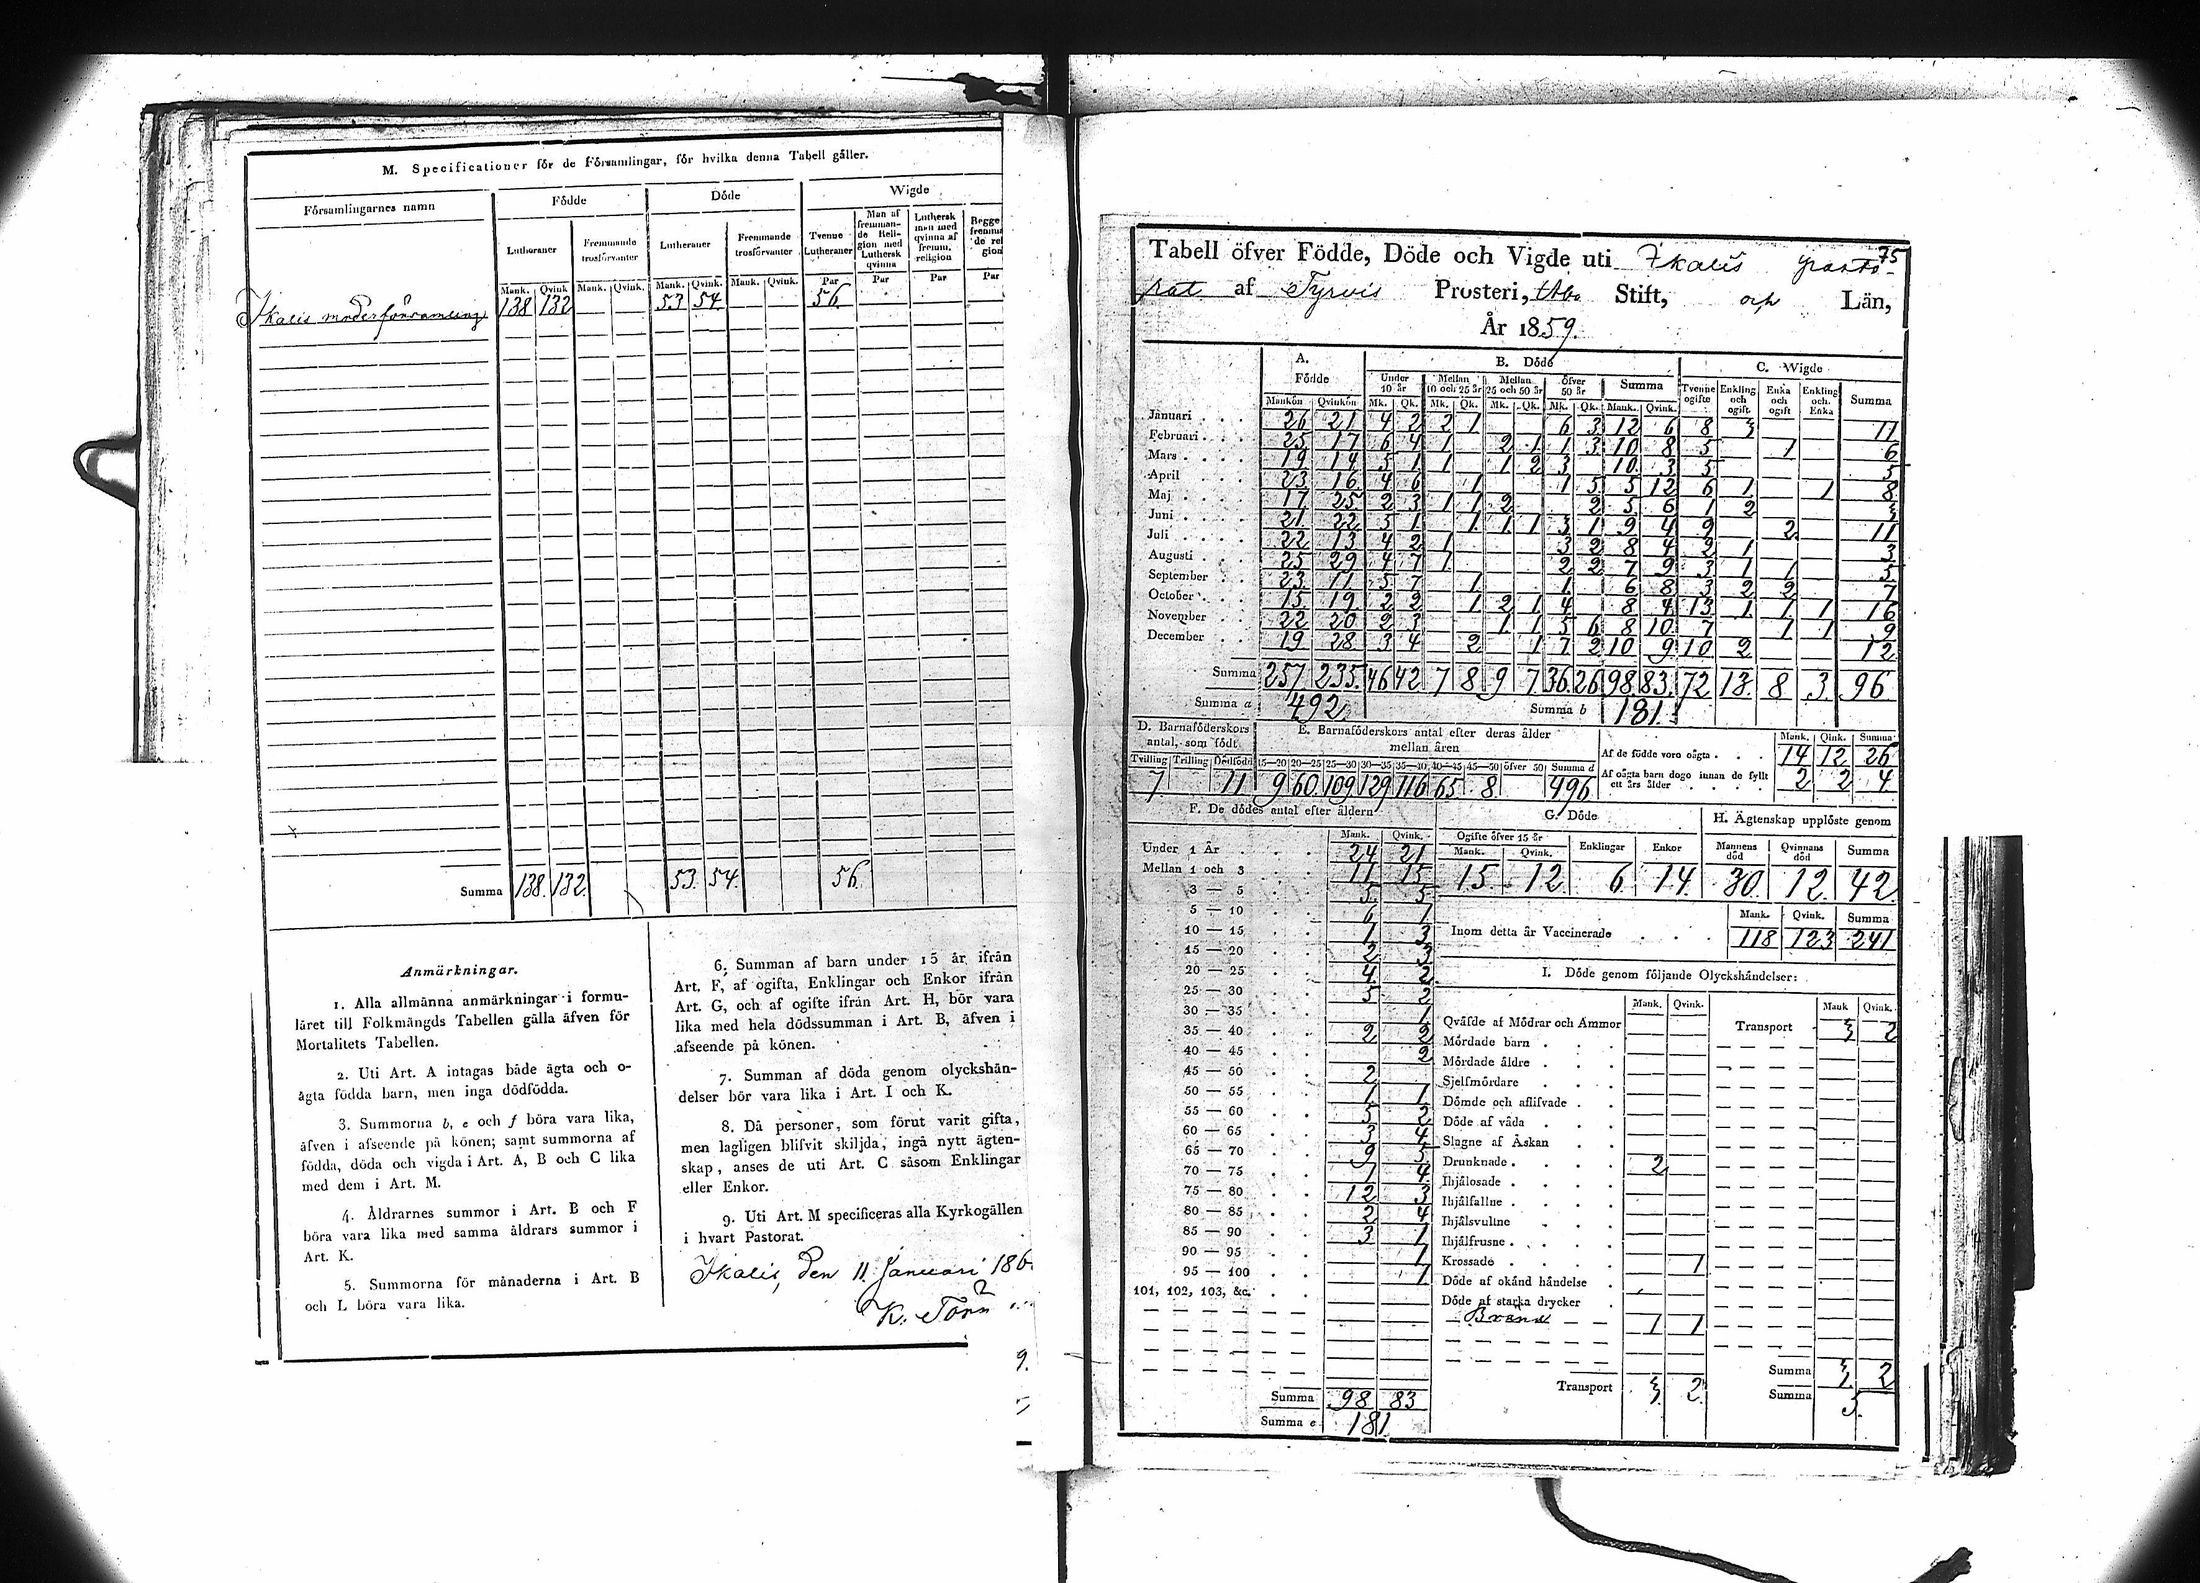 M. Specificationer för de Församlingar, för hvilka denna Tabell gäller.
Församlingarnes namn
Födde
Döde
Wigde
Lutheraner
Fremmande trosförvanter
Lutheraner
Fremmande trosförvanter
Tvenne Lutheraner
Man af fremmande Religion med Luthersk qvinna
Luthersk man med qvinna af fremm. religion
Mank. Qvink. Mank. Qvink. Mank. Qvink. Mank. Qvink. Par Par Par Par
Ikalis moderförsamling 138 132 53 54 56
Summa 138. 132. 53. 54. 56.
Anmärkningar.
1. Alla allmänna anmärkningar i formu-
läret till Folkmängds Tabellen gälla äfven för
Mortalitets Tabellen.
2. Uti Art. A intagas både ägta och o-
ägta födda barn, men inga dödfödda.
3. Summorna b, e och f böra vara lika,
äfven i afseende på könen; samt summorna af
födda, döda och vigda i Art. A, B och C lika
med dem i Art. M.
4. Åldrarnes summor i Art. B och F
böra vara lika med samma åldrars summor i
Art. K.
5. Summorna för månaderna i Art. B
och L böra vara lika.
6. Summan af barn under 15 år ifrån
Art. F, af ogifta, Enklingar och Enkor ifrån
Art. G, och af ogifte ifrån Art. H, bör vara
lika med hela dödssumman i Art. B, äfven i
afseende på könen.
7. Summan af döda genom olyckshän-
delser bör vara lika i Art. I och K.
8. Då personer, som förut varit gifta,
men lagligen blifvit skiljda, ingå nytt ägten-
skap, anses de uti Art. C såsom Enklingar
eller Enkor.
9. Uti Art. M specificeras alla Kyrkogällen
i hvart Pastorat.
Ikalis, den 11 Januari 186
75
Tabell öfver Födde, Döde och Vigde uti Ikalis
rat af Tyrvis Prosteri, Åbo Stift, och Län,
År 1859.
A. Födde
B. Döde
C. Wigde
Under 10 år
Mellan 10 och 25 år
Mellan 25 och 50 år
öfver 50 år
Summa
Tvenne ogifte
Enkling och ogift
Enka och ogift
Enkling och Enka
Summa
Mankön Qvinkön Mk. Qk. Mk. Qk. Mk. Qk. Mk. Qk. Mank. Qvink.
Januari 26 21 4 2 2 1 6 3 12 6 8 3 11
Februari 25 17 6 4 1 2 1 1 3 10 8 5 1 6
Mars 19 14 5 1 1 1 2 3 10 3 5 5
April 23 16 4 6 1 1 5 5 12 6 1 1 8
Maj 17 25 2 3 1 1 2 2 5 6 1 2 3
Juni 21 22 5 1 1 1 1 3 1 9 4 9 2 11
Juli 22 13 4 2 1 3 2 8 4 2 1 3
Augusti 25 29 4 7 1 2 2 7 9 3 1 1 5
September 23 11 5 7 1 1 6 8 3 2 2 7
October 15 19 2 2 1 2 1 4 8 4 13 1 1 1 16
November 22 20 2 3 1 1 5 6 8 10 7 1 1 9
December 19 28 3 4 2 1 7 2 10 9 10 2 12
Summa 257 235 46 42 7 8 9 7 36 26 98 83 72 13 8 3 96
Summa a 492
Summa b 181
D. Barnaföderskors antal, som födt
E. Barnaföderskors antal efter deras ålder mellan åren
Tvilling Trilling Dödfödd 15—20 20—25 25—30 30—35 35—40 40—45 45—50 öfver 50 Summa d
7 11 9 60 109 129 116 65 8 496
Mank. Qink. Summa
Af de födde voro oägta 14 12 26
Af oägta barn dogo innan de fyllt ett års ålder 2 2 4
F. De dödes antal efter åldern
Mank. Qvink.
Under 1 År 24 21
Mellan 1 och 3 11 15
3 — 5 5 5
5 — 10 6 1
10 — 15 1 3
15 — 20 2 3
20 — 25 4 2
25 — 30 5 2
30 — 35 1
35 — 40 2 2
40 — 45 2
45 — 50 2
50 — 55 1 1
55 — 60 5 2
60 — 65 3 4
65 — 70 9 5
70 — 75 1 4
75 — 80 12 3
80 — 85 2 4
85 — 90 3 1
90 — 95 1
95 — 100 1
101, 102, 103, &c.
Summa 98 83
Summa e 181
G. Döde
Ogifte öfver 15 år Enklingar Enkor
Mank. Qvink.
15 12 6 14
H. Ägtenskap upplöste genom
Mannens död Qvinnans död Summa
30 12 42
Mank. Qvink. Summa
Inom detta år Vaccinerade 118 123 241
I. Döde genom följande Olyckshändelser:
Mank. Qvink. Mank Qvink.
Qväfde af Mödrar och Ammor
Transport 3 2
Mördade barn
Mördade äldre
Sjelfmördare
Dömde och aflifvade
Döde af våda
Slagne af Åskan
Drunknade 2
Ihjälosade
Ihjälfallne
Ihjälsvultne
Ihjälfrusne
Krossade 1
Döde af okänd händelse
Döde af starka drycker
Bränd 1 1
Transport 3 2
Summa 3 2
Summa 5